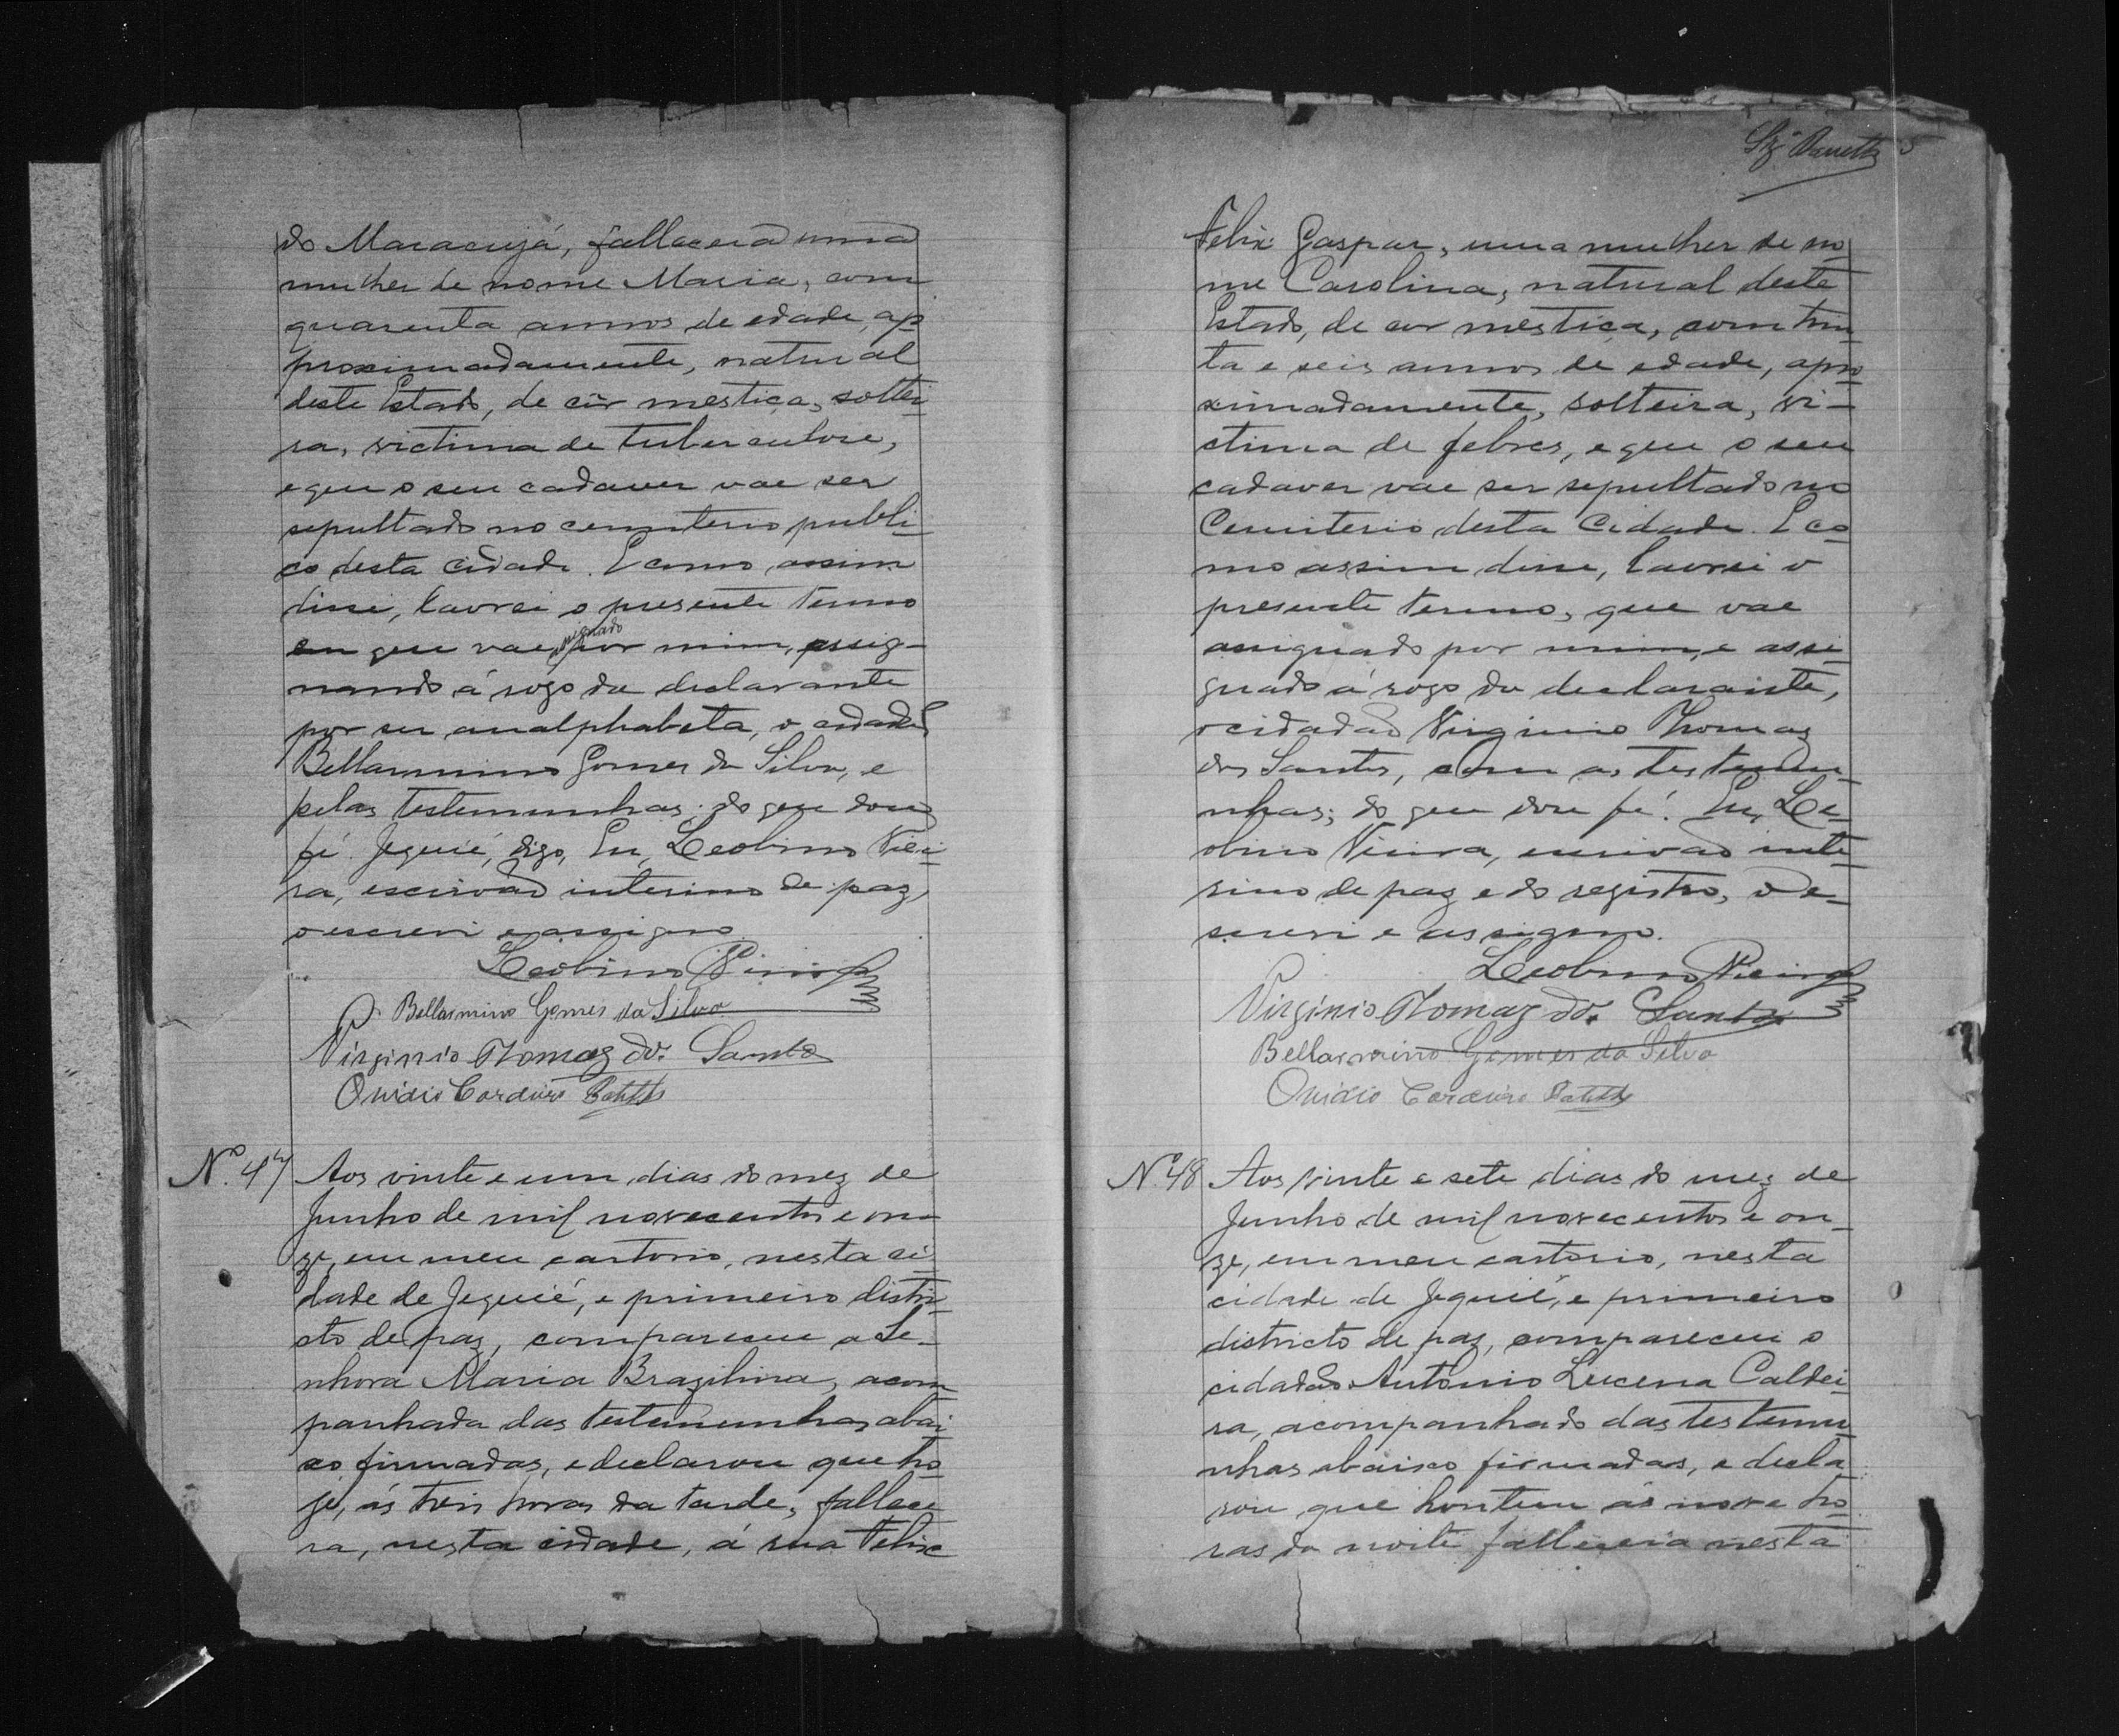 do Maracujá, fallecera uma
mulher de nome Maria, com
quarenta annos de edade, ap
proximadamente, natural
deste Estado, de côr mestiça, soltei-
ra, victima de tuberculose,
e que o seu cadaver vae ser
sepultado no cemiterio publi-
co desta cidade. E como assim
disse, lavrei o presente termo
em que vae, signado por mim, assig-
nando á rogo da declarante
por ser analphabeta, o cidadão
Bellarmino Gomes da Silva, e
pelas testemunhas; do que dou
fé. Jequié, digo, Eu, Leobino Viei-
ra, escrivão interino de paz,
o escrevi e assigno.
Leobino Vieira
Bellarmino Gomes da Silva
Virginio Thomaz dos Santos
Ouvidio Cordeiro
Nº 47 Aos vinte e um dias do mez de
Junho de mil novecentos e on-
ze, em meu cartorio, nesta ci-
dade de Jequié, e primeiro distri-
cto de paz, compareceu a Se-
nhora Maria Brazilina, acom-
panhada das testemunhas abai-
xo firmadas, e declarou que ho-
je, ás treis horas da tarde, fallece-
ra, nesta cidade, á rua Felix
5
Felix Gaspar, uma mulher de no
me Carolina, natural deste
Estado, de cor mestiça, com trin-
ta e seis annos de edade, apro-
ximadamente, solteira, vi-
ctima de febres, e que o seu
cadaver vae ser sepultado no
Cemiterio desta Cidade. E co-
mo assim disse, lavrei o
presente termo, que vae
assignado por mim, e assi-
gnado á rogo da declarante,
o cidadão Virginio Thomaz
dos Santos, com as testemu-
nhas; do que dou fé. Eu, Le-
obino Vieira, escrivão inte-
rino de paz e do registro, o e-
screvi e assigno.
Leobino Vieira
Virginio Thomaz dos Santos
Bellarmino Gomes da Silva
Ouvidio Cordeiro
Nº 48 Aos vinte e sete dias do mez de
Junho de mil novecentos e on-
ze, em meu cartorio, nesta
cidade de Jequié, e primeiro
districto de paz, compareceu o
cidadão Antonio Lucena Caldei-
ra, acompanhado das testemu-
nhas abaixo firmadas, e decla-
rou que hontem ás nove ho-
ras da noite fallecera nesta